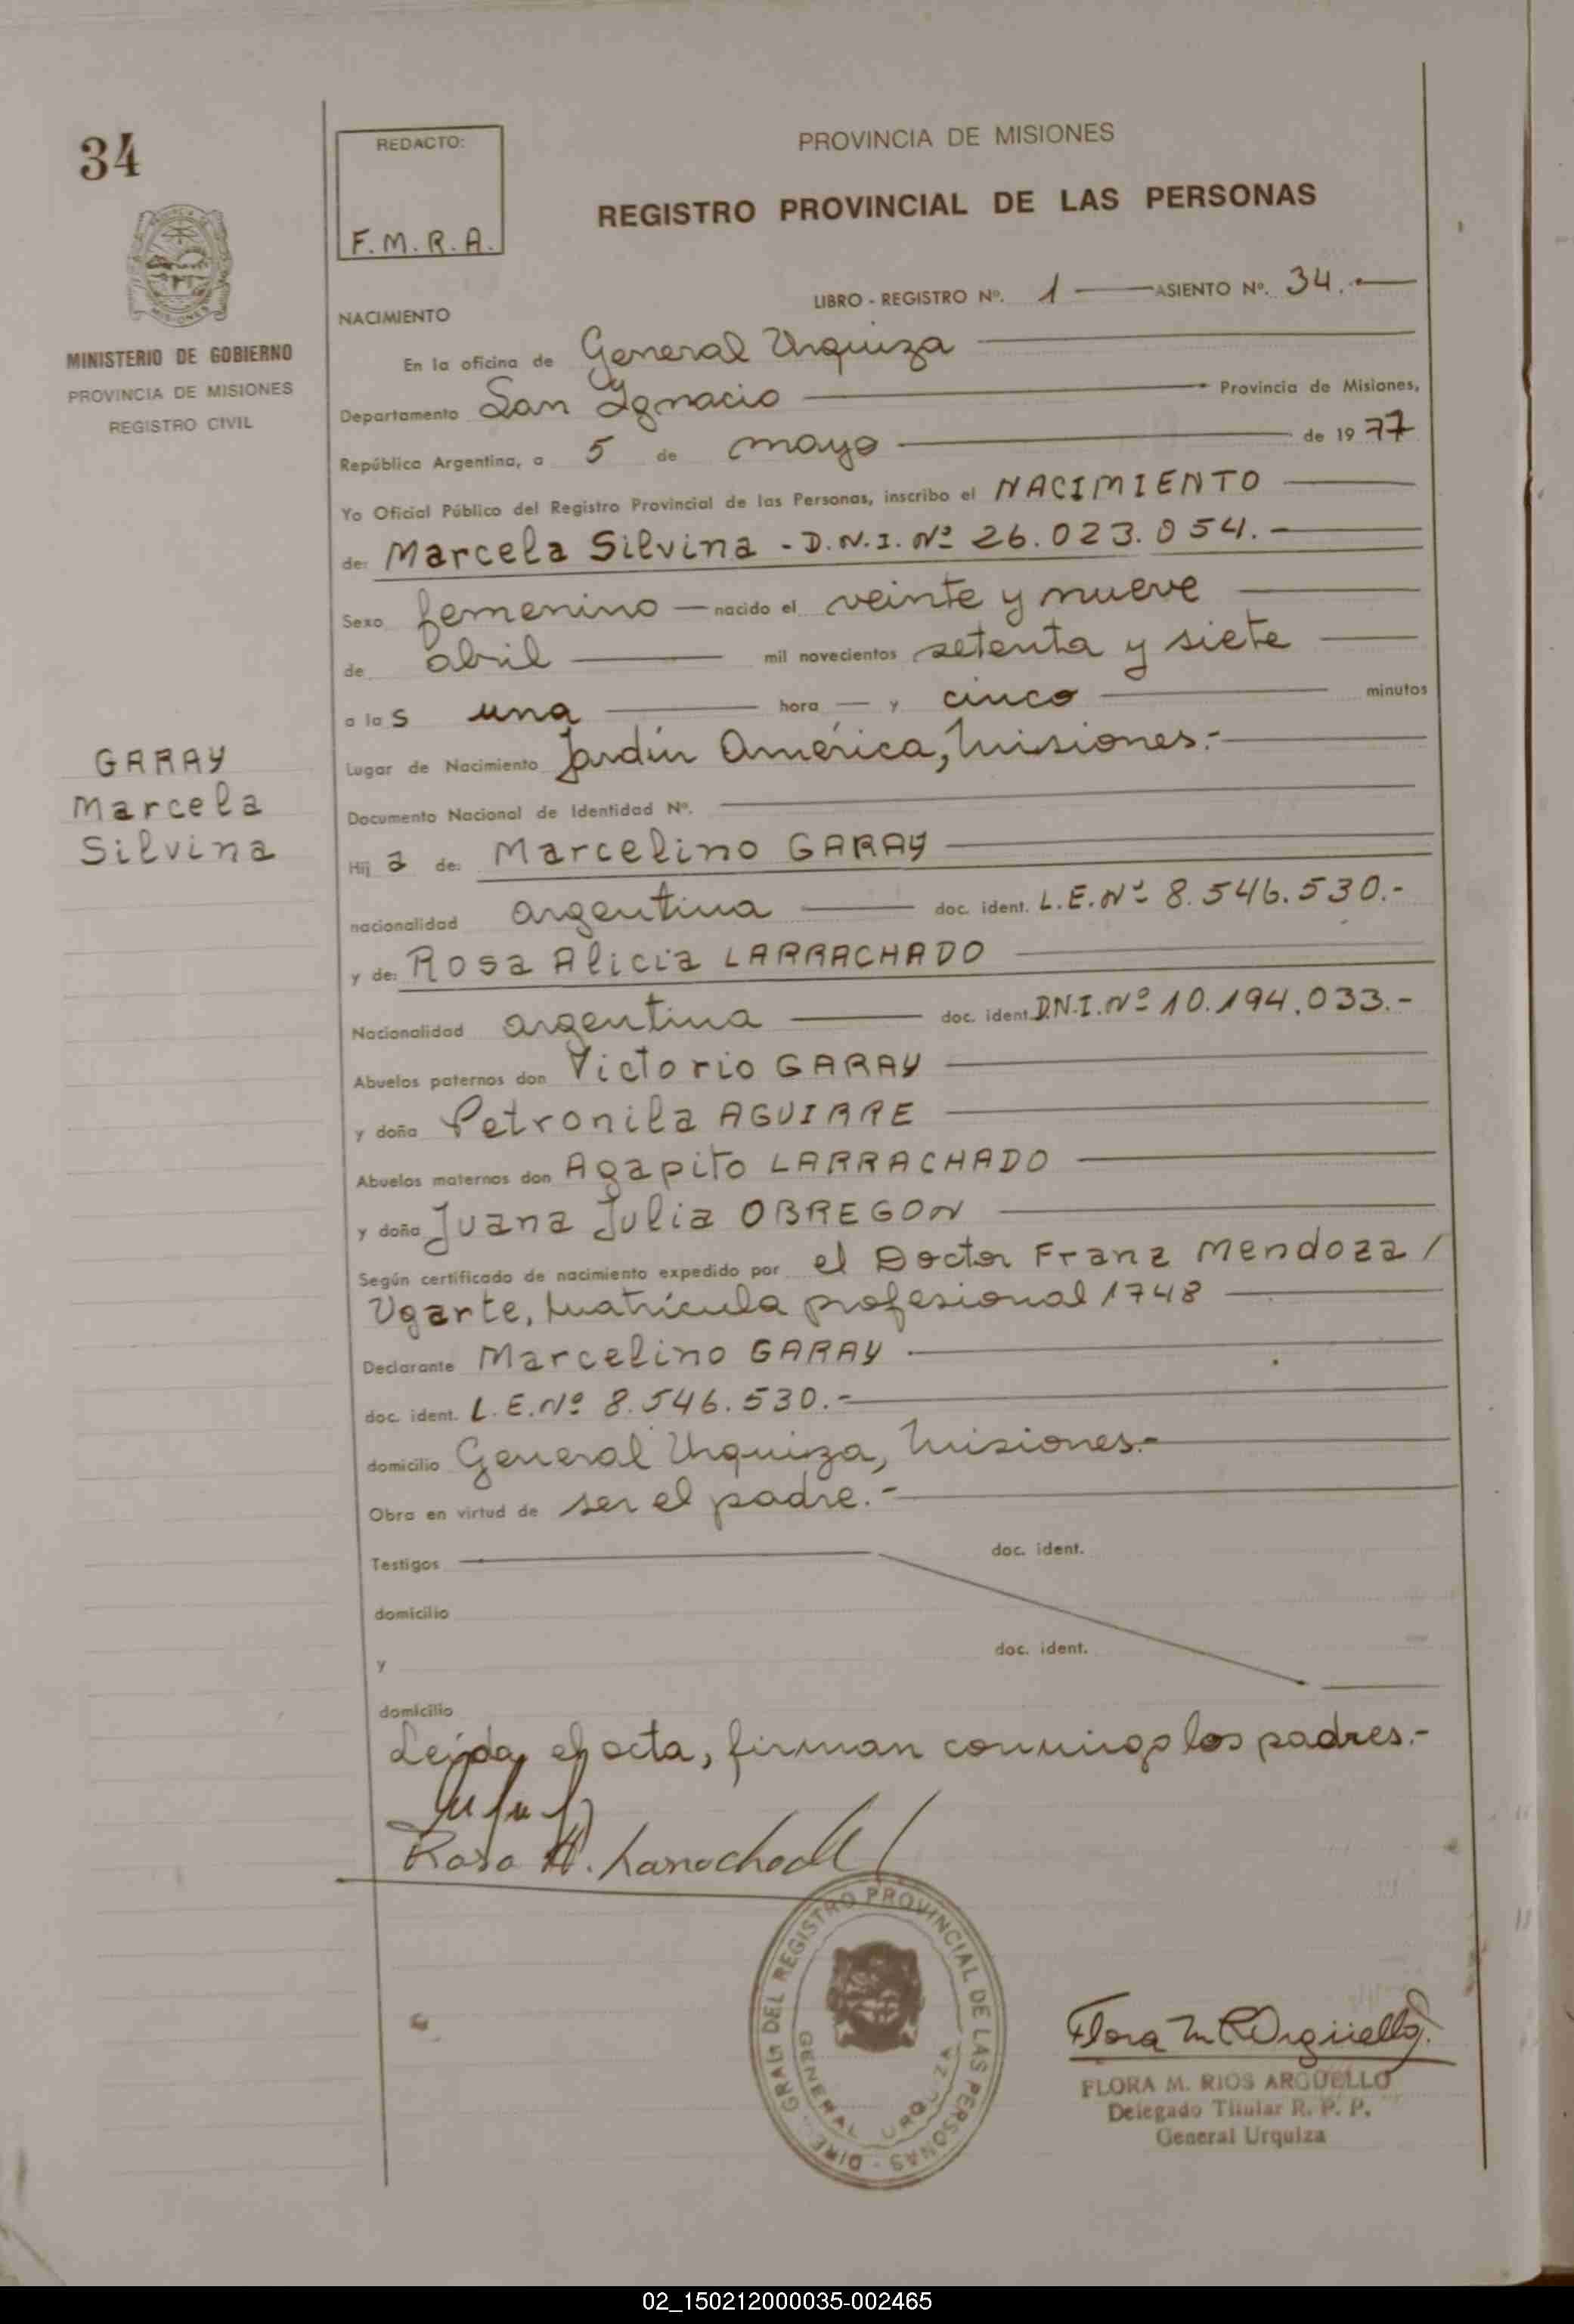 34
REDACTO:
F.M.R.A.
PROVINCIA DE MISIONES
REGISTRO PROVINCIAL DE LAS PERSONAS
LIBRO - REGISTRO Nº. 1 ASIENTO Nº. 34.
MISIONES
MINISTERIO DE GOBIERNO
PROVINCIA DE MISIONES
REGISTRO CIVIL
NACIMIENTO
En la oficina de General Urquiza
Departamento San Ignacio Provincia de Misiones,
República Argentina, a 5 de mayo de 1977
Yo Oficial Público del Registro Provincial de las Personas, inscribo el NACIMIENTO
de: Marcela Silvina - D.N.I. Nº 26.023.054.-
Sexo femenino nacido el veinte y nueve
de abril mil novecientos setenta y siete
a las una hora y cinco minutos
GARAY
Marcela
Silvina
Lugar de Nacimiento Jardín América, Misiones.-
Documento Nacional de Identidad Nº.
Hija de: Marcelino GARAY
nacionalidad argentina doc. ident. L.E. Nº 8.546.530.-
y de: Rosa Alicia LARRACHADO
Nacionalidad argentina doc. ident. D.N.I. Nº 10.194.033.-
Abuelos paternos don Victorio GARAY
y doña Petronila AGUIRRE
Abuelos maternos don Agapito LARRACHADO
y doña Juana Julia OBREGON
Según certificado de nacimiento expedido por el Doctor Franz Mendoza /
Ugarte, matrícula profesional 1748
Declarante Marcelino GARAY
doc. ident. L.E. Nº 8.546.530.-
domicilio General Urquiza, Misiones.-
Obra en virtud de ser el padre.-
Testigos doc. ident.
domicilio
y doc. ident.
domicilio
Leída el acta, firman conmigo los padres.-
Rosa A. Larrachado
DIRE. GRAL DEL REGISTRO PROVINCIAL DE LAS PERSONAS -
GENERAL URQUIZA
Flora M R Argüello.
FLORA M. RIOS ARGÜELLO
Delegado Titular R. P. P.
General Urquiza
02_150212000035-002465